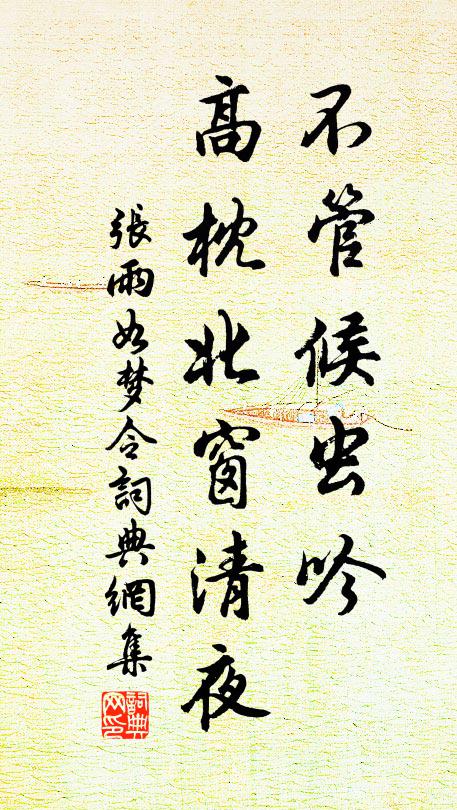 不管候虫吟
高枕北窗清夜
張雨如梦令詞典網集
詞典網印